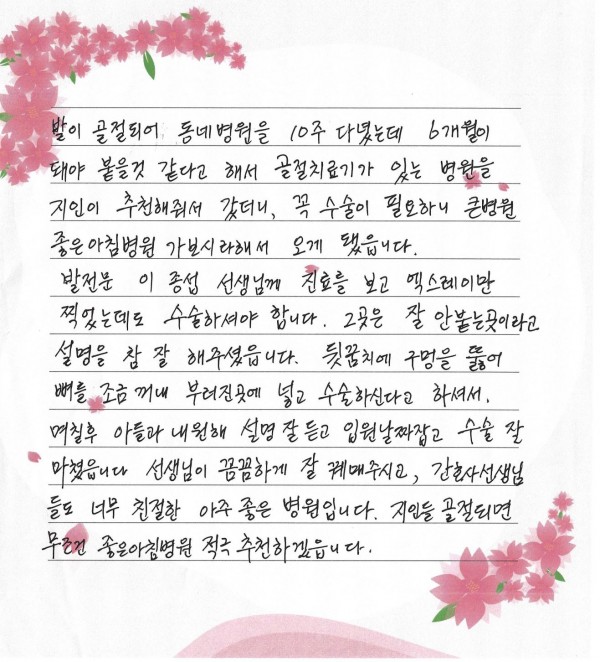 발이 골절되어 동네병원을 10주 다녔는데 6개월이
돼야 붙을것 같다고 해서 골절치료기가 있는 병원을
지인이 추천해줘서 갔더니, 꼭 수술이 필요하니 큰병원
좋은아침병원 가보시라해서 오게 됐읍니다.
발전문 이 종섭 선생님께 진료를 보고 엑스레이만
찍었는데도 수술하셔야 합니다. 그곳은 잘 안붙는곳이라고
설명을 참 잘 해주셨읍니다. 뒷꿈치에 구멍을 뚫어
뼈를 조금 꺼내 부러진곳에 넣고 수술하신다고 하셔서.
며칠후 아들과 내원해 설명 잘 듣고 입원날짜잡고 수술 잘
마쳤읍니다 선생님이 꼼꼼하게 잘 꿰매주시고, 간호사선생님
들도 너무 친절한 아주 좋은 병원입니다. 지인들 골절되면
무조건 좋은아침병원 적극 추천하겠읍니다.